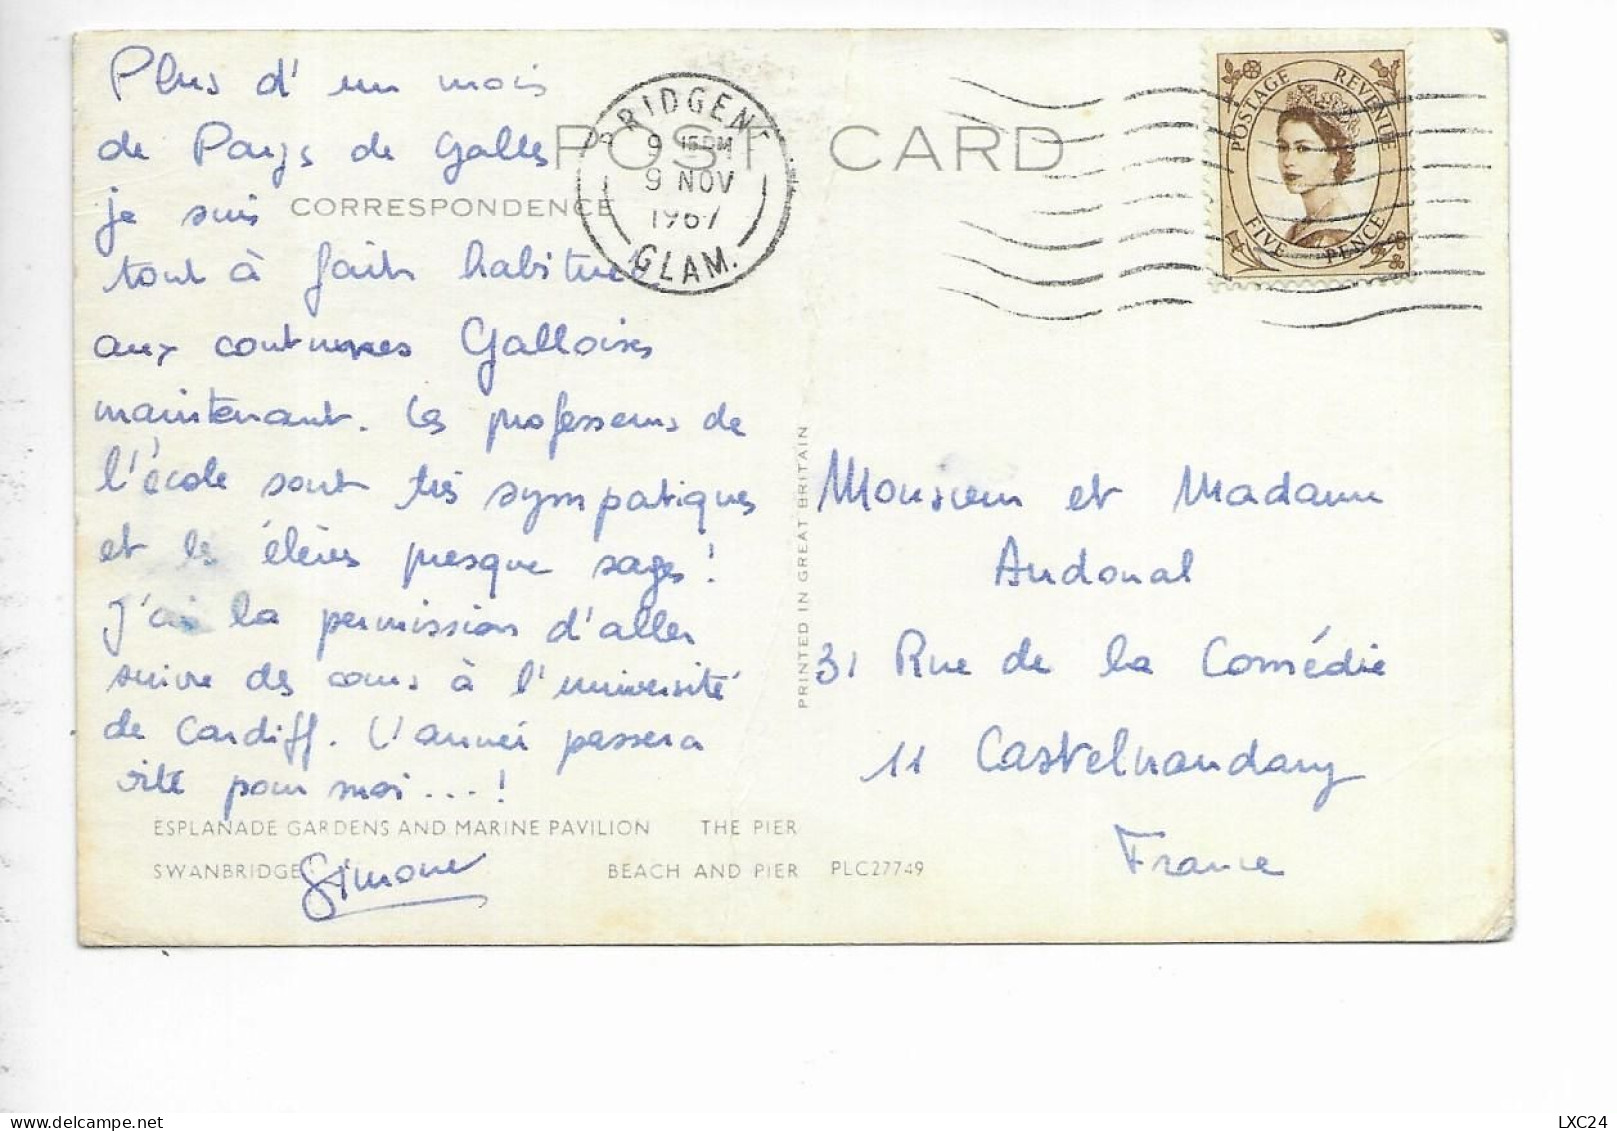 Plus d'un mois
de Pays de Galles
je suis
tout à fait habituée
aux coutumes Galloises
maintenant. Les professeurs de
l'école sont très sympatiques
et les élèves presque sages!
J'ai la permission d'aller
suivre des cours à l'université
de Cardiff. L'année passera
vite pour moi....!
Simone
POST CARD
CORRESPONDENCE
BRIDGEND
9 15PM
9 NOV
1967
GLAM.
POSTAGE REVENUE
FIVE PENCE
PRINTED IN GREAT BRITAIN
Monsieur et Madame
Andonal
31 Rue de la Comédie
11 Castelnaudary
France
ESPLANADE GARDENS AND MARINE PAVILION THE PIER
SWANBRIDGE BEACH AND PIER PLC27749
LXC24